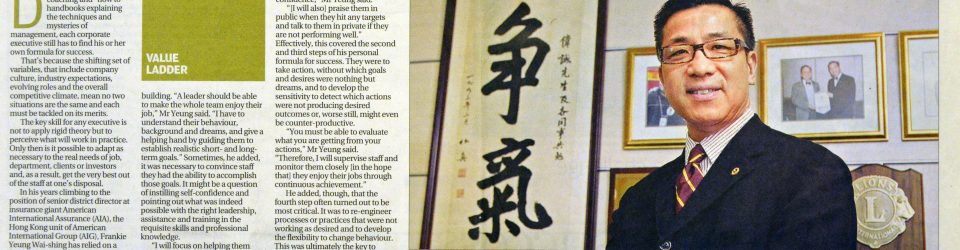 D
coaching and "how to"
handbooks explaining
the techniques and
mysteries of
management, each corporate
executive still has to find his or her
own formula for success.
That's because the shifting set of
variables, that include company
culture, industry expectations,
evolving roles and the overall
competitive climate, mean no two
situations are the same and each
must be tackled on its merits.
The key skill for any executive is
not to apply rigid theory but to
perceive what will work in practice.
Only then is it possible to adapt as
necessary to the real needs of job,
department, clients or investors
and, as a result, get the very best out
of the staff at one's disposal.
In his years climbing to the
position of senior district director at
insurance giant American
International Assurance (AIA), the
Hong Kong unit of American
International Group (AIG), Frankie
Yeung Wai-shing has relied on a
VALUE
LADDER
building. "A leader should be able
to make the whole team enjoy their
job," Mr Yeung said. "I have to
understand their behaviour,
background and dreams, and give a
helping hand by guiding them to
establish realistic short- and long-
term goals." Sometimes, he added,
it was necessary to convince staff
they had the ability to accomplish
those goals. It might be a question
of instilling self-confidence and
pointing out what was indeed
possible with the right leadership,
assistance and training in the
requisite skills and professional
knowledge.
"I will focus on helping them
confidence," Mr Yeung said.
"[I will also] praise them in
public when they hit any targets
and talk to them in private if they
are not performing well."
Effectively, this covered the second
and third steps of his personal
formula for success. They were to
take action, without which goals
and desires were nothing but
dreams, and to develop the
sensitivity to detect which actions
were not producing desired
outcomes or, worse still, might even
be counter-productive.
"You must be able to evaluate
what you are getting from your
actions," Mr Yeung said.
"Therefore, I will supervise staff and
monitor them closely [in the hope
that] they enjoy their jobs through
continuous achievement."
He added, though, that the
fourth step often turned out to be
most critical. It was to re-engineer
processes or practices that were not
working as desired and to develop
the flexibility to change behaviour.
This was ultimately the key to
偉誠先生及各同事共勉
爭氣
LIONS
L
INTERNATIONAL